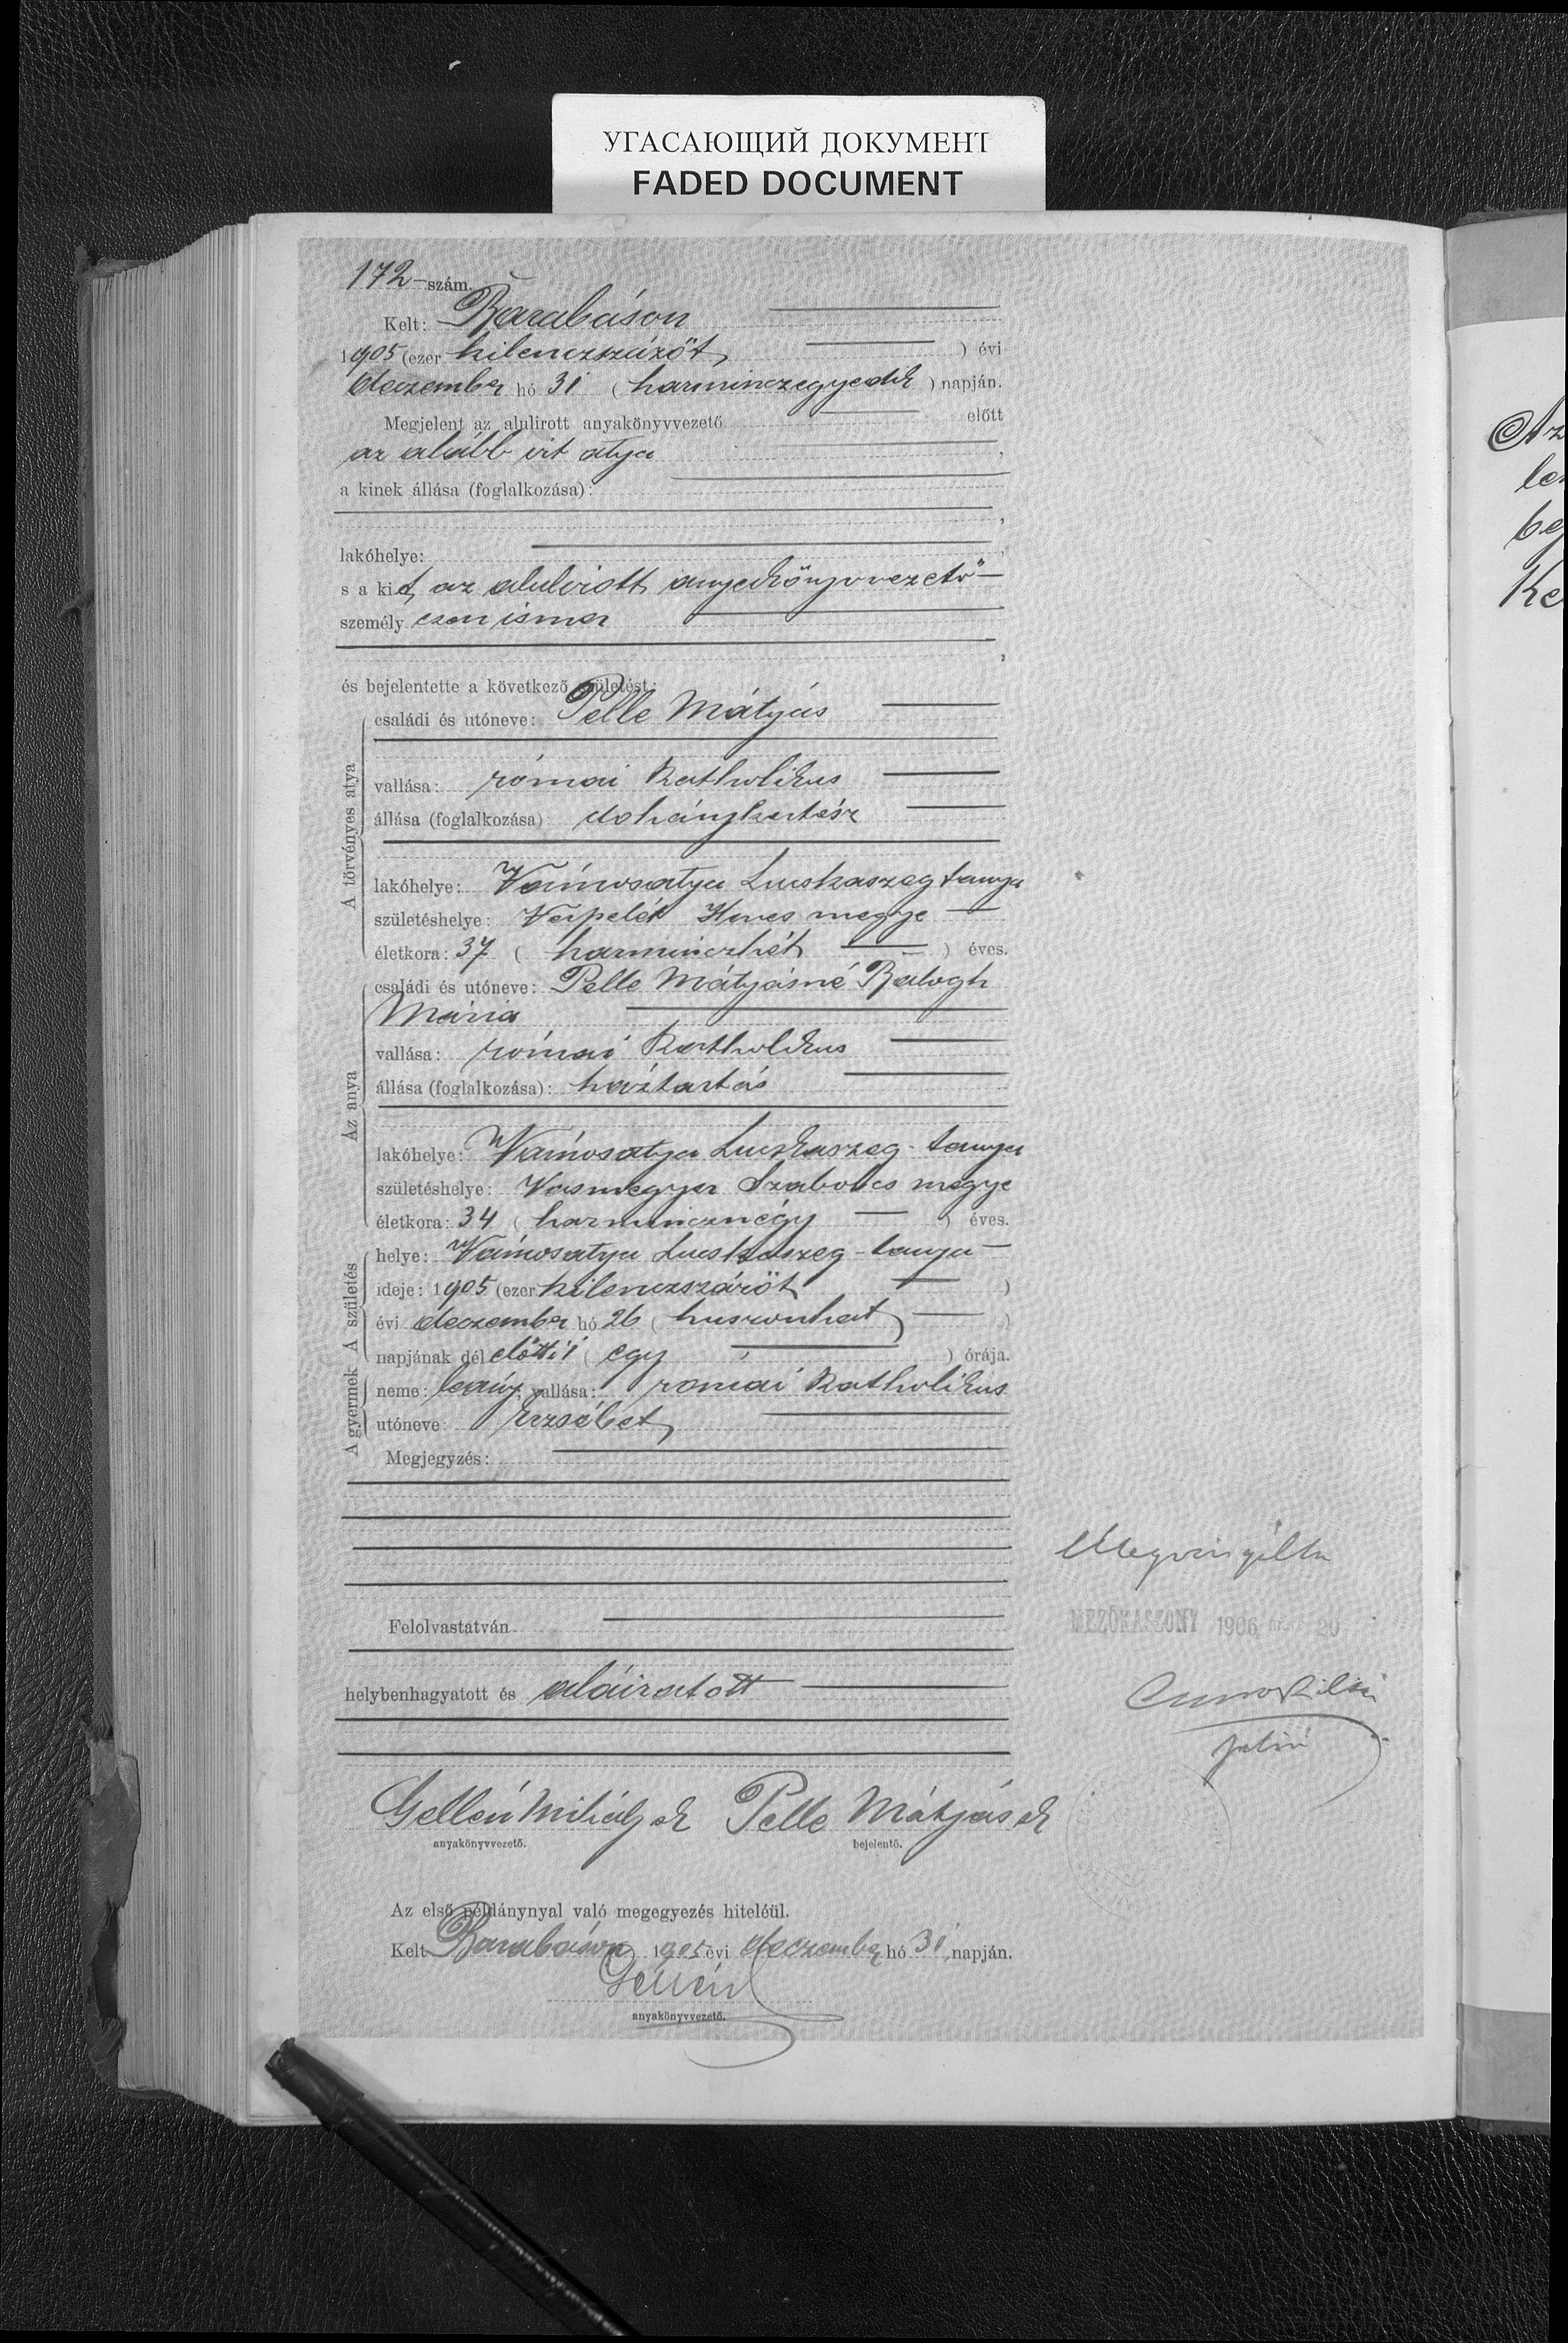 УГАСАЮЩИЙ ДОКУМЕНТ
FADED DOCUMENT
172 szám.
Kelt: Barabáson
1905 (ezer kilenczszázöt) évi
deczember hó 31 (harminczegyedik) napján.
Megjelent az alulirott anyakönyvvezető előtt
az alább irt atya,
a kinek állása (foglalkozása):
lakóhelye:
s a kit az alulirott anyakönyvvezető
személyesen ismer
és bejelentette a következő születést:
A törvényes atya
családi és utóneve: Pelle Mátyás
vallása: római katholikus
állása (foglalkozása) dohánykertész
lakóhelye: Vámosatya Lucskaszeg tanya
születéshelye: Verpelét Heves megye
életkora: 37 (harminczhét) éves.
Az anya
családi és utóneve: Pelle Mátyásné Balogh
Mária
vallása: római katholikus
állása (foglalkozása): háztartás
lakóhelye: Vámosatya Lucskaszeg-tanya
születéshelye: Vasmegyer Szabolcs megye
életkora: 34 (harmincznégy) éves.
A születés
helye: Vámosatya Lucskaszeg-tanya
ideje: 1905 (ezer kilenczszázöt)
évi deczember hó 26 (huszonhat)
napjának délelőtti 1 (egy) órája.
A gyermek
neme: leány, vallása: római katholikus
utóneve: Erzsébet
Megjegyzés:
Felolvastatván
helybenhagyatott és aláiratott
Gellén Mihály sk Pelle Mátyás sk
anyakönyvvezető. bejelentő.
Az első példánynyal való megegyezés hiteléül.
Kelt Barabáson 1905 évi deczember hó 31 napján.
Gellén
anyakönyvvezető.
Megvizsgálta
MEZŐKASZONY 1906 20
Az
be
Ke